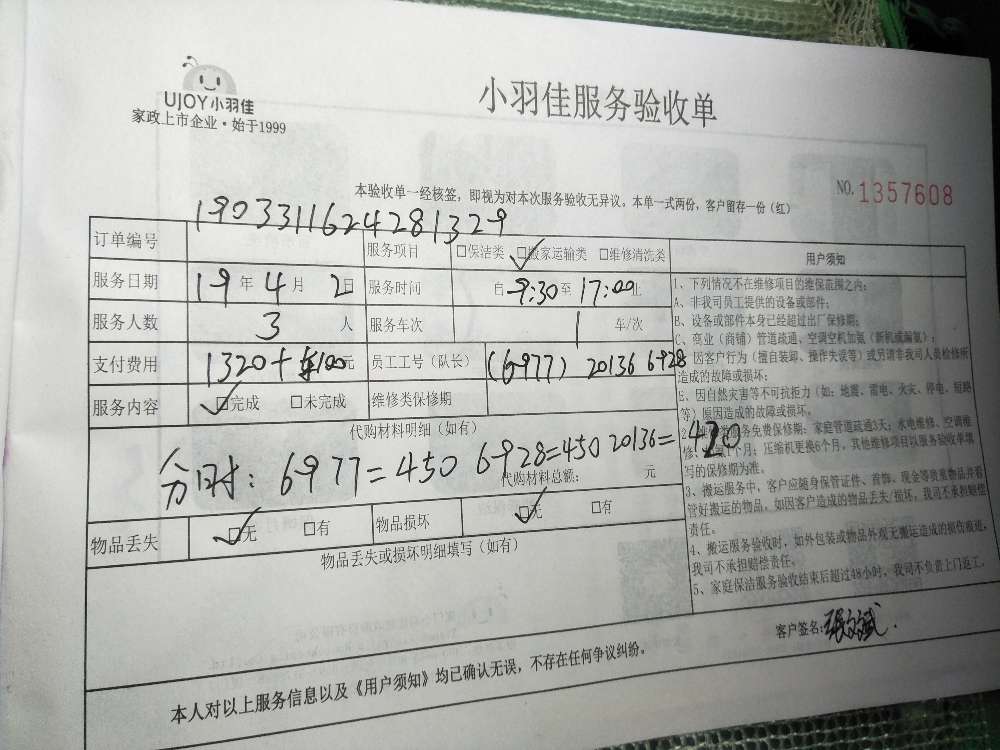 UJOY小羽佳
家政上市企业·始于1999
小羽佳服务验收单
本验收单一经核签，即视为对本次服务验收无异议。本单一式两份，客户留存一份（红）
NO.1357608
订单编号 1903311624281329
服务项目 □保洁类 □搬家运输类 □维修清洗类
服务日期 19年4月2日 服务时间 自9:30至17:00止
服务人数 3人 服务车次 1车/次
支付费用 1320+ 100元 员工工号（队长） (6977) 20136 6928
服务内容 □完成 □未完成 维修类保修期
代购材料明细（如有）
分时：6977=450 6928=450 20136=420
代购材料总额： 元
物品丢失 □无 □有 物品损坏 □无 □有
物品丢失或损坏明细填写（如有）
用户须知
1、下列情况不在维修项目的维保范围之内：
A、非我司员工提供的设备或部件；
B、设备或部件本身已经超过出厂保修期；
C、商业（商铺）管道疏通、空调空机加氨（新机或编氨）；
因客户行为（擅自装卸、操作失误等）或另请非我司人员检修所
造成的故障或损坏；
E、因自然灾害等不可抗拒力（如：地震、雷电、火灾、停电、短路
等）原因造成的故障或损坏。
务免费保修期：家庭管道疏通3天；水电维修、空调维
1个月；压缩机更换6个月，其他维修项目以服务验收单填
写的保修期为准。
3、搬运服务中，客户应随身保管证件、首饰、现金等贵重物品并看
管好搬运的物品。如因客户造成的物品丢失/损坏，我司不承担赔偿
责任。
4、搬运服务验收时，如外包装或物品外观无搬运造成的损伤痕迹，
我司不承担赔偿责任。
5、家庭保洁服务验收结束后超过48小时，我司不负责上门返工。
客户签名：张文斌
本人对以上服务信息以及《用户须知》均已确认无误，不存在任何争议纠纷。